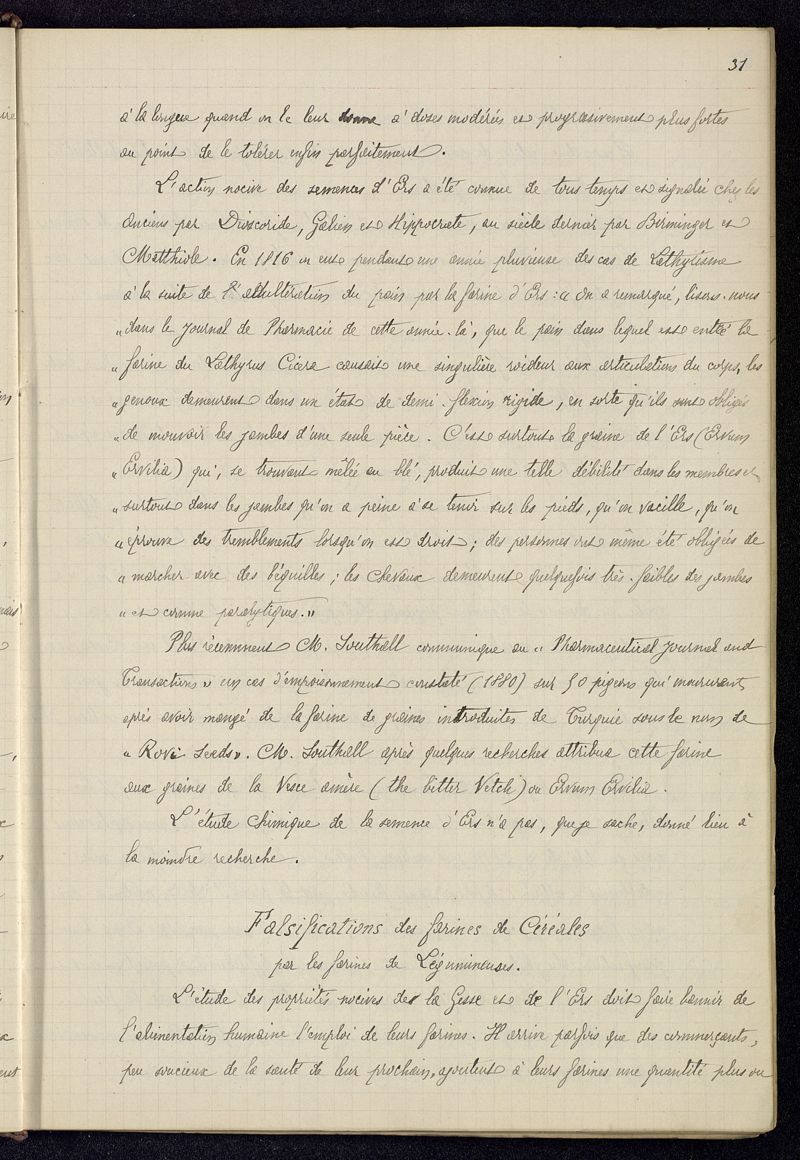 31
à la longue quand on le leur donne à doses modérées et progressivement plus fortes
au point de le tolérer enfin parfaitement.
L'action nocive des semences d'Ers a été connue de tous temps et signalée chez les
anciens par Dioscoride, Galien et Hippocrate, au siècle dernier par Birminger et
Matthiole. En 1816 on eut pendant une année pluvieuse des cas de Lathyrisme
à la suite de l'adultération du pain par la farine d'Ers : « On a remarqué, lisons-nous
« dans le Journal de Pharmacie de cette année-là, que le pain dans lequel est entré la
« farine du Lathyrus Cicera causait une singulière roideur aux articulations du corps, les
« genoux demeurent dans un état de demi-flexion rigide, en sorte qu'ils sont obligés
« de mouvoir les jambes d'une seule pièce. C'est surtout la graine de l'Ers (Ervum
« Ervilia) qui, se trouvant mêlée au blé, produit une telle débilité dans les membres et
« surtout dans les jambes qu'on a peine à se tenir sur les pieds, qu'on vacille, qu'on
« éprouve des tremblements lorsqu'on est droit ; des personnes ont même été obligées de
« marcher avec des béquilles ; les chevaux demeurent quelquefois très-faibles des jambes
« et comme paralytiques. »
Plus récemment M. Southall communique au « Pharmaceutical Journal and
Transactions » un cas d'empoisonnement constaté (1880) sur 50 pigeons qui moururent
après avoir mangé de la farine de graines introduites de Turquie sous le nom de
« Rovi Seeds ». M. Southall après quelques recherches attribua cette farine
aux graines de la Vesce amère (the bitter Vetch) ou Ervum Ervilia.
L'étude chimique de la semence d'Ers n'a pas, que je sache, donné lieu à
la moindre recherche.
Falsifications des farines de Céréales
par les farines de Légumineuses.
L'étude des propriétés nocives de la Gesse et de l'Ers doit faire bannir de
l'alimentation humaine l'emploi de leurs farines. Il arrive parfois que des commerçants,
peu soucieux de la santé de leur prochain, ajoutent à leurs farines une quantité plus ou